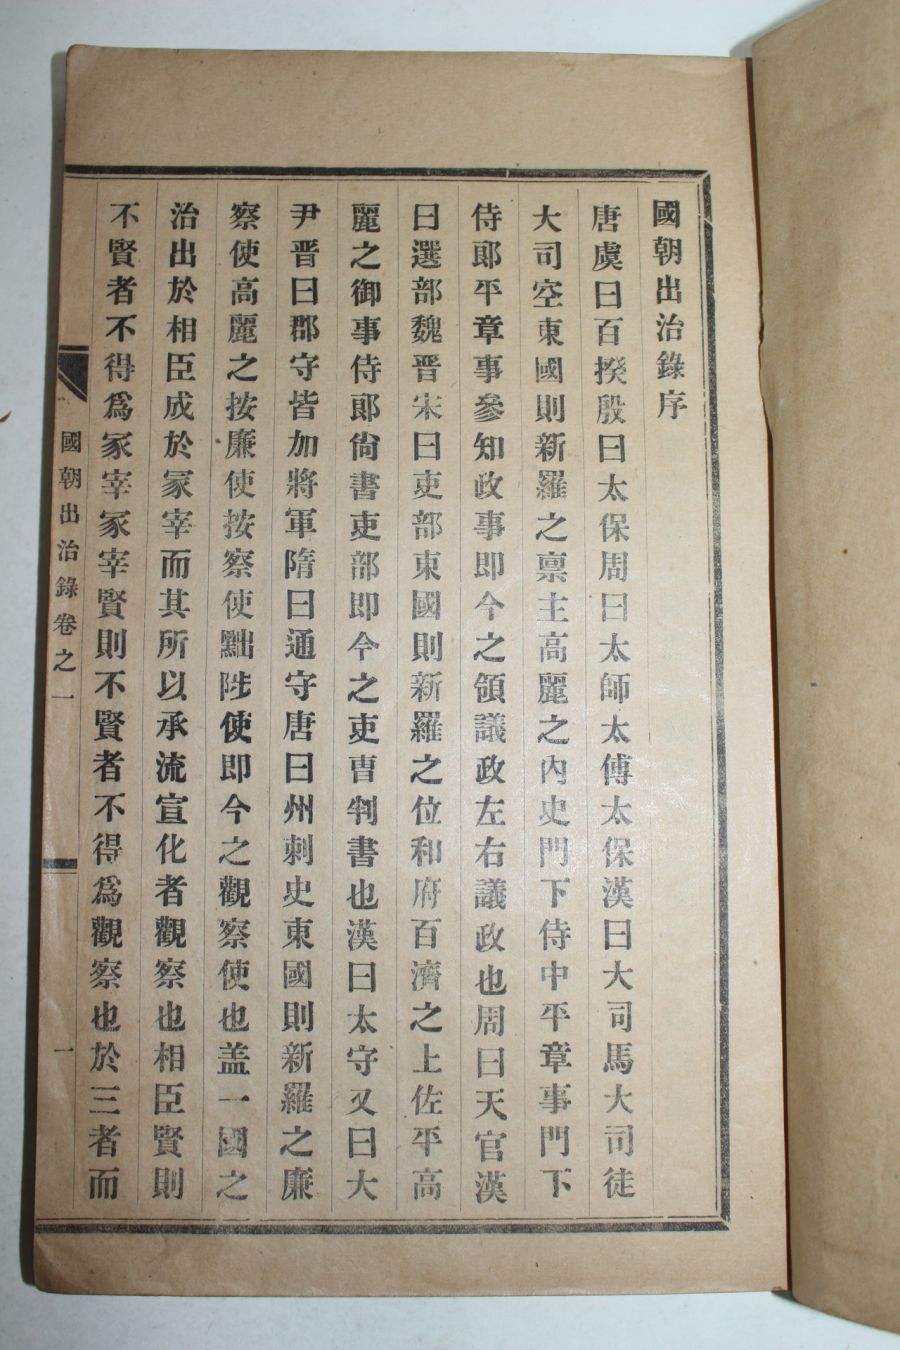 國朝出治錄序
唐虞曰百揆殷曰太保周曰太師太傅太保漢曰大司馬大司徒
大司空東國則新羅之禀主高麗之內史門下侍中平章事門下
侍郞平章事參知政事即今之領議政左右議政也周曰天官漢
曰選部魏晋宋曰吏部東國則新羅之位和府百濟之上佐平高
麗之御事侍郞尙書吏部即今之吏曺判書也漢曰太守又曰大
尹晋曰郡守皆加將軍隋曰通守唐曰州刺史東國則新羅之廉
察使高麗之按廉使按察使黜陟使即今之觀察使也盖一國之
治出於相臣成於冢宰而其所以承流宣化者觀察也相臣賢則
不賢者不得爲冢宰冢宰賢則不賢者不得爲觀察也於三者而
國朝出治錄卷之一
一